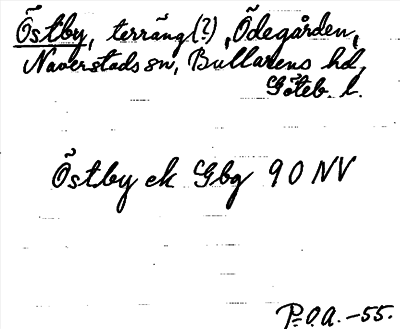 Östby, terräng(?), Ödegården,
Naverstads sn, Bullarens hd,
Göteb. l.
Östby ek Gbg 90 NV
P.O.A. -55.